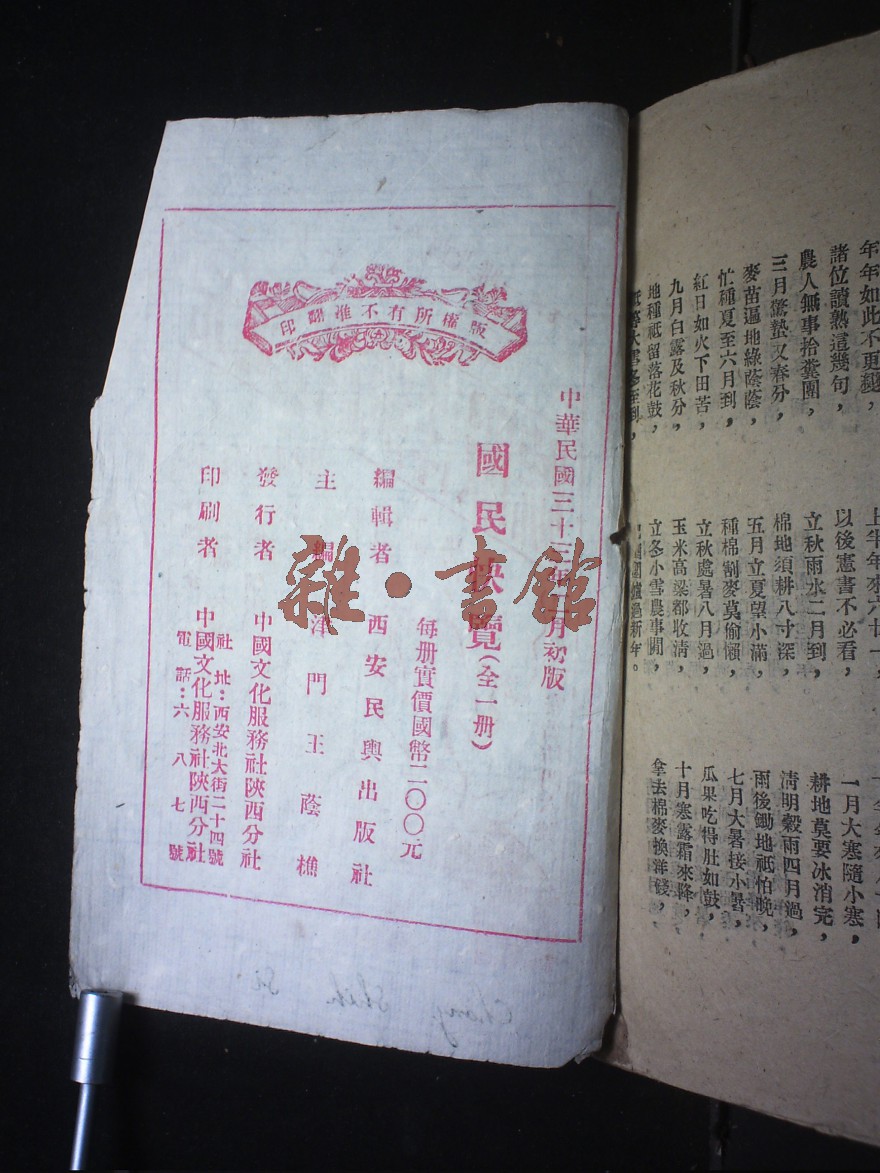 年年如此不更變， 上半年來六廿一，
諸位讀熟這幾句， 以後憲書不必看， 一月大寒隨小寒，
農人無事拾糞團， 立秋雨水二月到， 耕地莫要冰消完，
三月驚蟄又春分， 棉地須耕八寸深， 清明穀雨四月過，
麥苗逼地綠蔭蔭， 五月立夏望小滿， 雨後鋤地祇怕晚，
忙種夏至六月到， 種棉割麥莫偷懶， 七月大暑接小暑，
紅日如火下田苦， 立秋處暑八月過， 瓜果吃得肚如鼓，
九月白露及秋分， 玉米高梁都收清， 十月寒露霜來降，
地種祇留落花鼓， 立冬小雪農事閒， 拿去棉麥換洋錢，
大雪冬至到， 過新年。
版權所有不准翻印
中華民國三十三年 月初版
國民快覽（全一册）
每册實價國幣二〇〇元
編輯者 西安民興出版社
主編 津門王蔭樵
發行者 中國文化服務社陝西分社
印刷者 中國文化服務社陝西分社
社址：西安北大街二十四號
電話：六八七號
雜·書館
Chang Shih Si